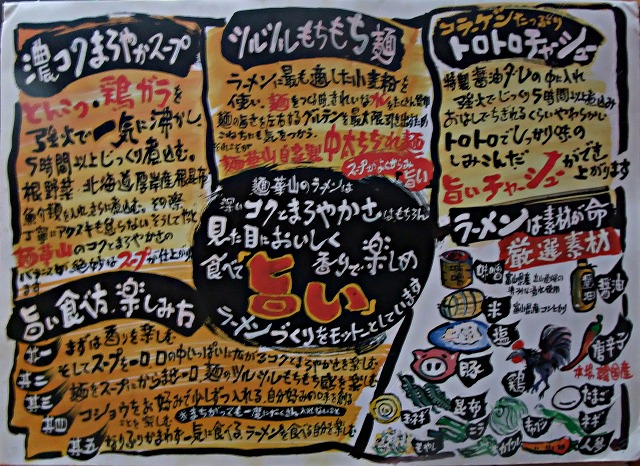 濃コクまろやかスープ
とんこつ・鶏ガラを
強火で一気に沸かし、
5時間以上じっくり煮込む。
根野菜、北海道厚岸産根昆布
魚介類を入れ、さらに煮込む。その際、
丁寧にアクヌキを怠らない。そうしてやっと
麺華山のコクとまろやかさの
バランスが絶妙なスープが仕上がり
ます
ツルツルもちもち麺
ラーメンに最も適した小麦粉を
使い、麺をつくる時きれいな水を
麺の旨さを左右するグルテンを最大限引き出すため
こねかたも気をつかう。
それこそが
麺華山自家製 中太ちぢれ麺
スープがよくからみ
旨い
コラーゲンたっぷり
トロトロチャーシュー
特製醤油ダレの中に入れ
強火でじっくり5時間以上煮込み
おはしでちぎれるくらいやわらかい
トロトロでしっかり味の
しみこんだ
旨いチャーシューができ
上がります
麺華山のラーメンは
深いコクとまろやかさはもちろん
見た目においしく
香りで楽しめ
食べて「旨い」
ラーメンづくりをモットーとしています
旨い食べ方、楽しみ方
其一 まずは香りを楽しむ
其二 そしてスープを一口 口の中いっぱいに広がるコクとまろやかさを楽しむ
其三 麺をスープにからませ一口 麺のツルツルもちもち感を楽しむ
其四 コショウをお好みで少しずつ入れる、自分好みの味を創る
ことを楽しむ ※まちがっても一度にたくさん入れないこと
其五 なりふりかまわず一気に食べる。ラーメンを食べる自分を楽しむ
ラーメンは素材が命
厳選素材
味噌
醤油
米
富山県産コシヒカリ
塩
唐辛子
本場韓国産
豚
鶏
たまご
玉ネギ
昆布
キャベツ
ネギ
もやし
ニラ
人参